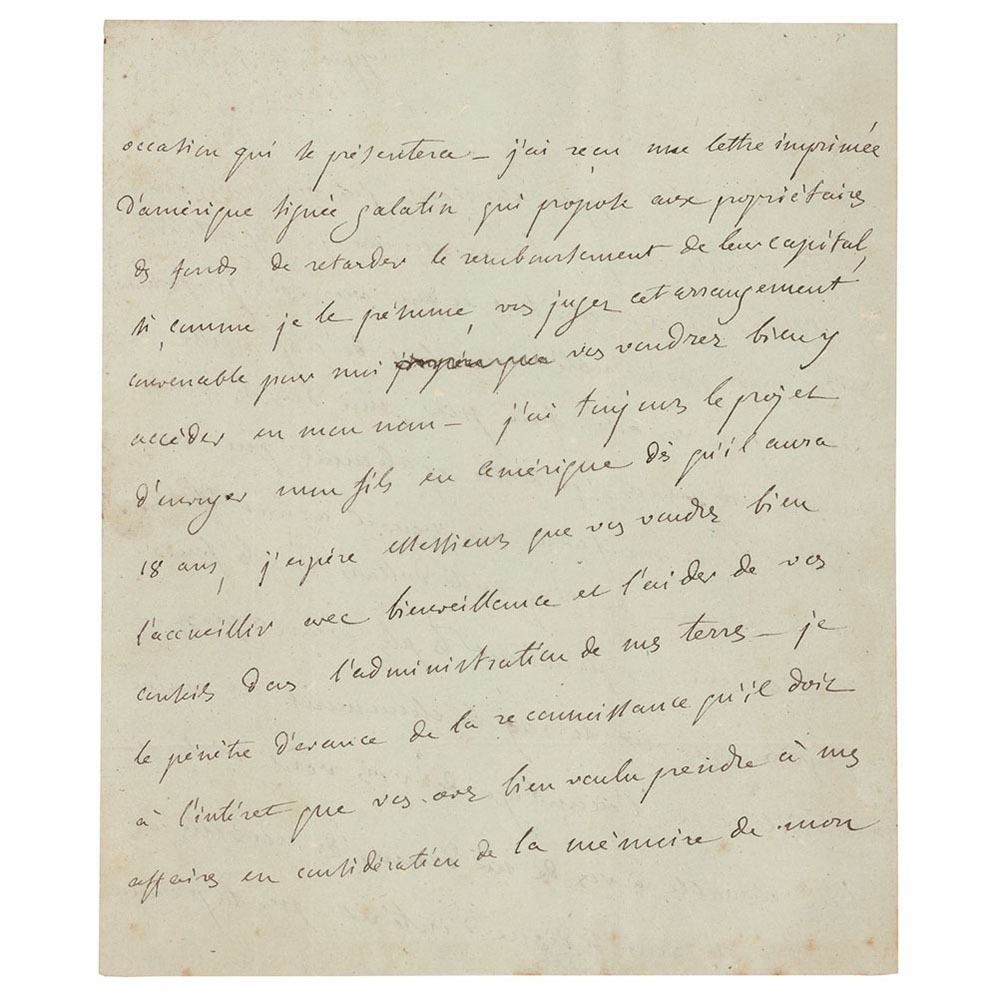 occasion qui se présentera – j'ai reçu une lettre imprimée
d'amérique signée galatin qui propose aux propriétaires
de fonds de retarder le remboursement de leur capital,
si, comme je le présume, vos jugez cet arrangement
convenable pour moi vos voudrez bien y
accéder en mon nom – j'ai toujours le projet
d'envoyer mon fils en amérique dès qu'il aura
18 ans, j'espère Messieurs que vos voudrez bien
l'accueillir avec bienveillance et l'aider de vos
conseils dans l'administration de mes terres – je
le pénètre d'avance de la reconnaissance qu'il doit
à l'intéret que vos avez bien voulu prendre à mes
affaires en considération de la mémoire de mon